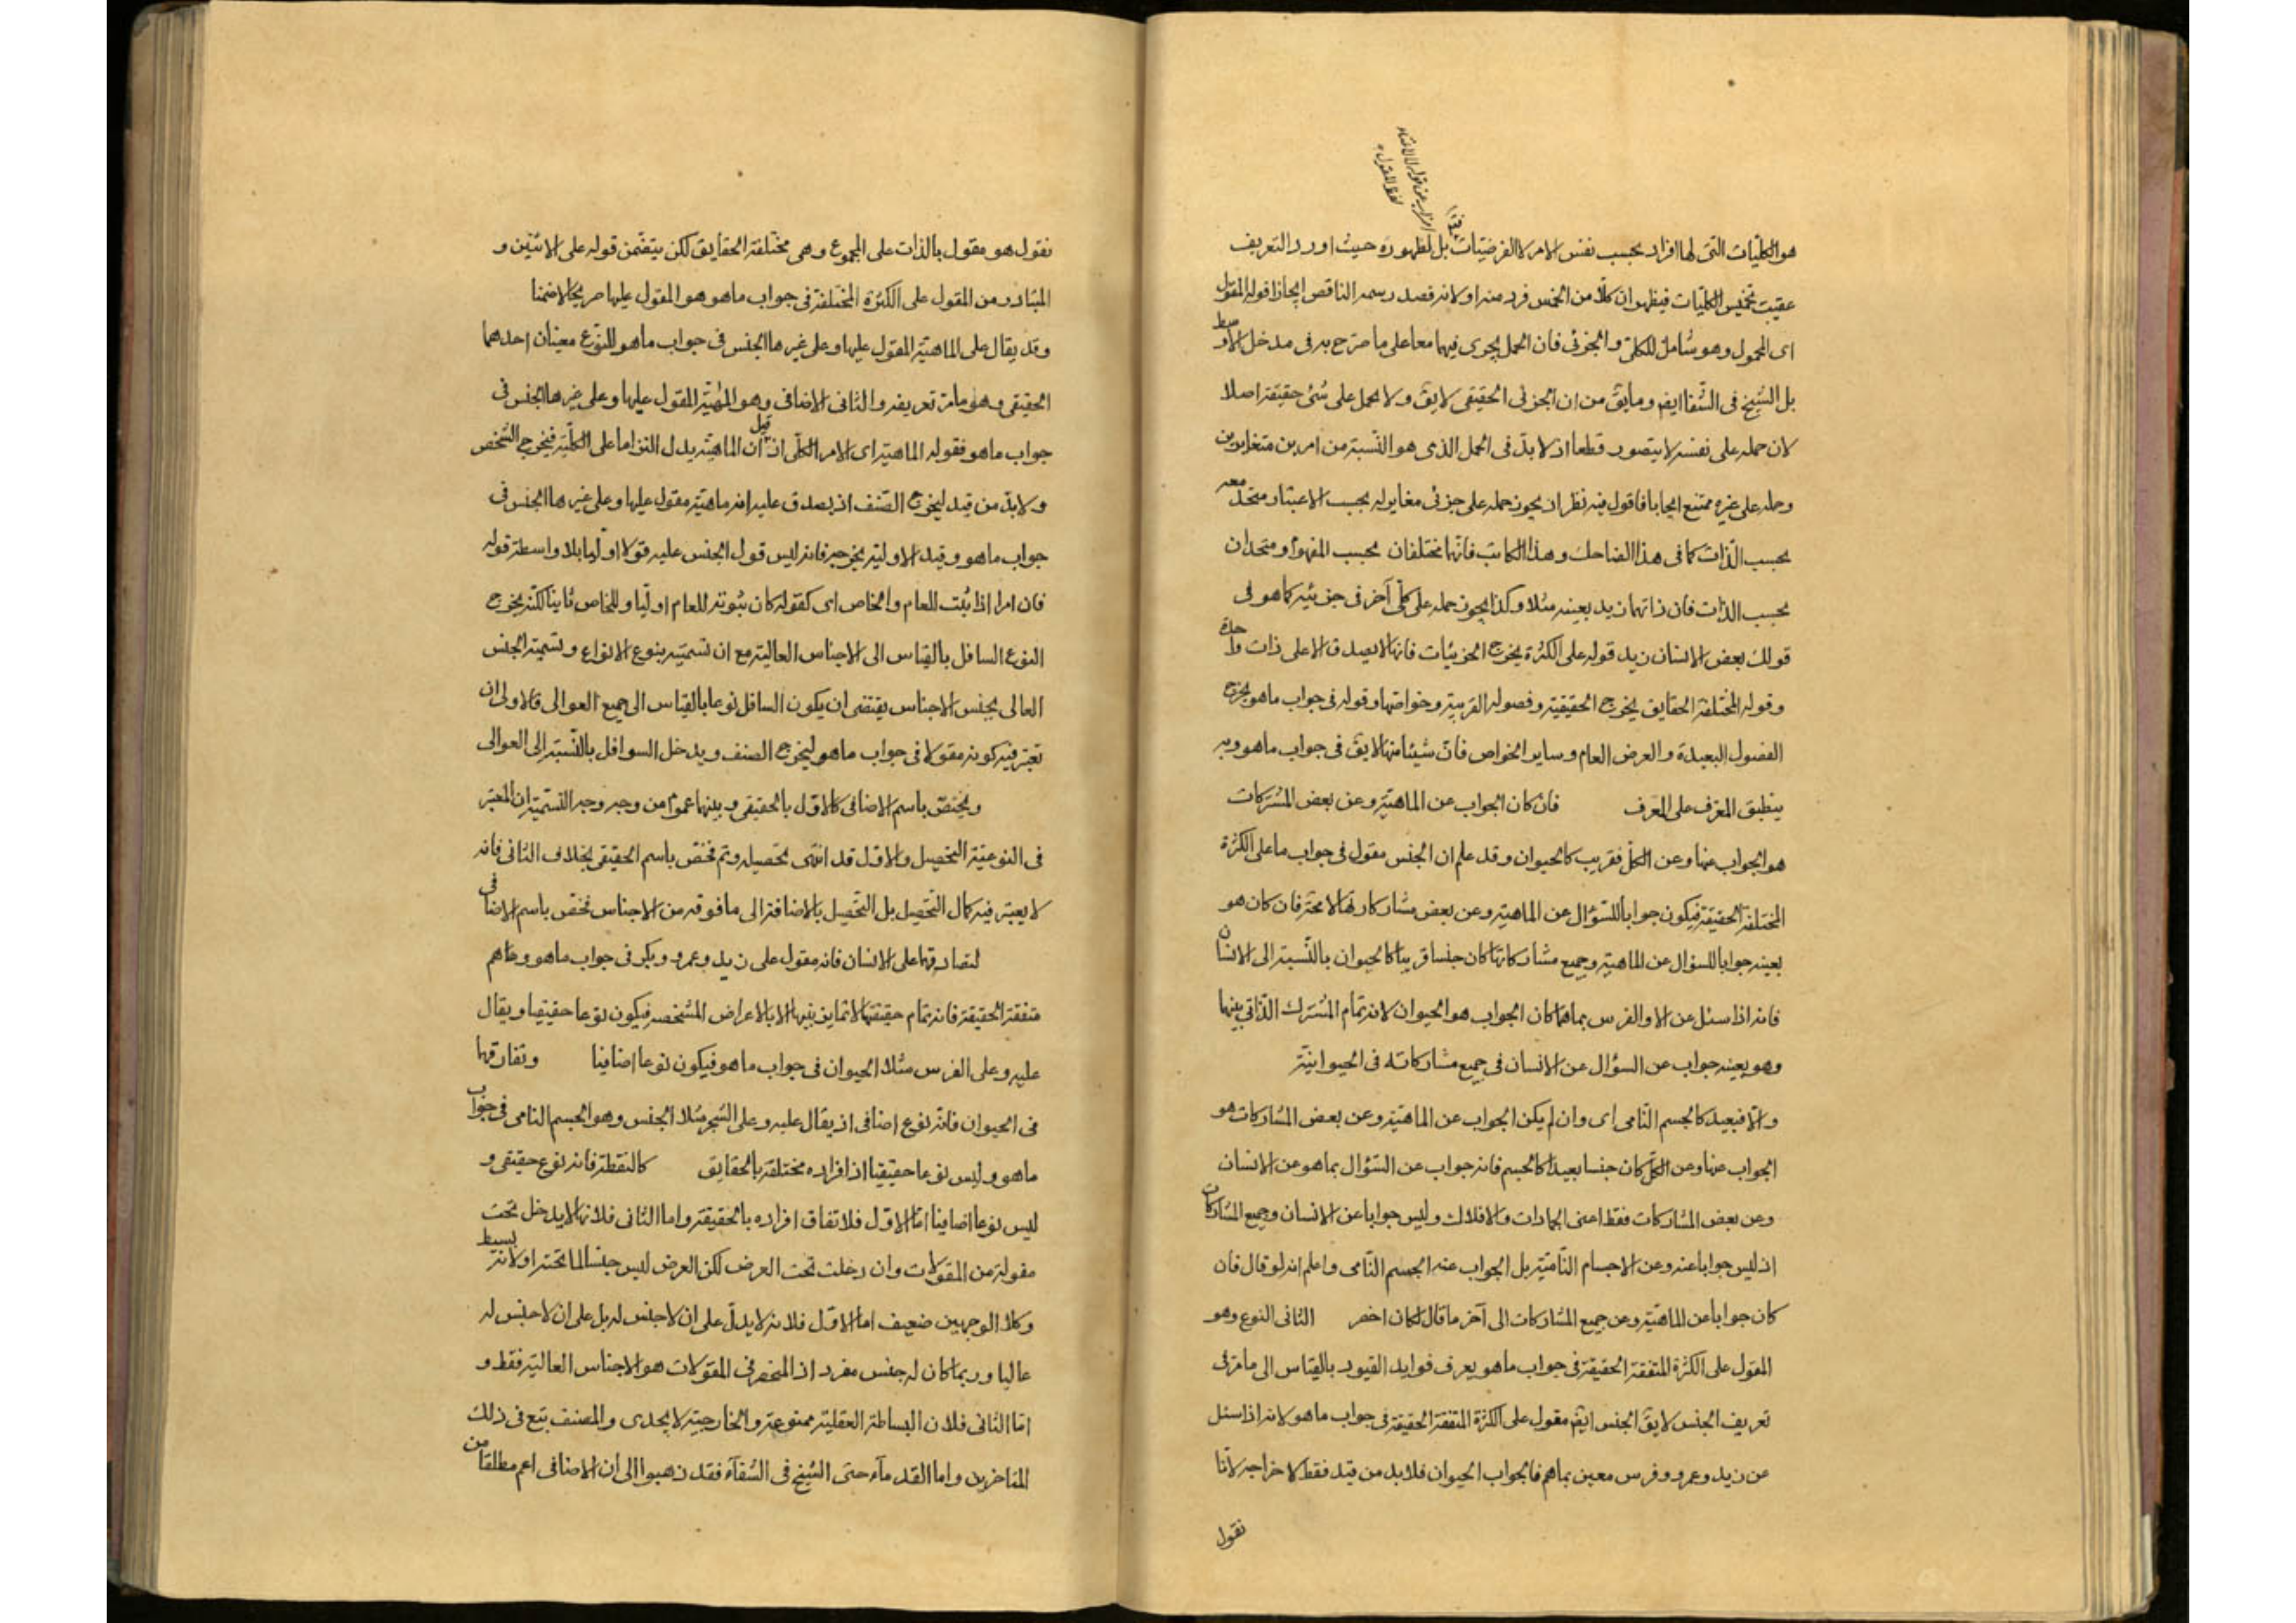 هو الكلّيات التى لها افراد بحسب نفس الامر لا الفرضيّات بل لظهوره حيث اورد التعريف
عقيب تخميس الكليّات فيظهر ان كلّا من الخمس فرد منه او لانه قصد رسمه الناقص ايجازا قوله المقول
اى المحمول وهو شامل للكلّى والجزئى فان الحمل يجرى فيهما معا على ما صرّح به فى مدخل الاوسط
بل الشيخ فى الشّفا ايضم وما يقّ من ان الجزئى الحقيقى لا يقّ ولا يحمل على شئ حقيقة اصلا
لان حمله على نفسه لا يتصور قطعا اذ لا بدّ فى الحمل الذى هو النّسبة من امرين متغايرين
وحمله على غيره ممتنع ايجابا فاقول فيه نظر اذ يجوز حمله على جزئى مغاير له بحسب الاعتبار متحد معه
بحسب الذّات كما فى هذا الضاحك وهذا الكاتب فانّهما مختلفان بحسب المفهوم ومتحدان
بحسب الذات فان ذاتهما زيد بعينه مثلا وكذا يجوز حمله على كلّى آخر فى جزئية كما هو فى
قولك بعض الانسان زيد قوله على الكثرة يخرج الجزئيات فانها لا يصدق الا على ذات واحدة
وقوله المختلفة الحقايق يخرج الحقيقية وفصوله القريبة وخواصّها وقوله فى جواب ما هو يخرج
الفصول البعيدة والعرض العام وساير الخواص فانّ شيئا منها لا يقّ فى جواب ما هو وبه
ينطبق المعرّف على المعرف فان كان الجواب عن الماهيّة وعن بعض المشتركات
هو الجواب عنها وعن الكلّ فقريب كالحيوان وقد علم ان الجنس مقول فى جواب ما على الكثرة
المختلفة الحقيقة فيكون جوابا للسّؤال عن الماهية وعن بعض مشاركاتها لا محة فان كان هو
بعينه جوابا للسؤال عن الماهية وجميع مشاركاتها كان جنسا قريبا كالحيوان بالنّسبة الى الانسان
فانه اذا سئل عن الا والفرس بما هما كان الجواب هو الحيوان لانه تمام المشترك الذّاتى بينهما
وهو بعينه جواب عن السؤال عن الانسان فى جميع مشاركاته فى الحيوانيّة
والّا فبعيد كالجسم النّامى اى وان لم يكن الجواب عن الماهيّة وعن بعض المشاركات هو
الجواب عنها وعن الكلّ كان جنسا بعيدا كالجسم فانه جواب عن السّؤال بما هو عن الانسان
وعن بعض المشاركات فقط اعنى الجمادات والافلاك وليس جوابا عن الانسان وجميع المشاركات
اذ ليس جوابا عنه وعن الاجسام النّامّية بل الجواب عنه الجسم النّامى واعلم انه لو قال فان
كان جوابا عن الماهيّة وعن جميع المشاركات الى آخر ما قال لكان اخصر الثانى النوع وهو
المقول على الكثرة المتفقة الحقيقة فى جواب ما هو يعرف فوايد القيود بالقياس الى ما مرّ فى
تعريف الجنس لا يقّ الجنس ايضم مقول على الكثرة المتفقة الحقيقة فى جواب ما هو لانه اذا سئل
عن زيد وعمرو وفرس معين بما هم فالجواب الحيوان فلا بد من قيد فقط لاخراجه لانّا
نقول
نقول هو مقول بالذات على المجموع وهى مختلفة الحقايق لكن يتضمّن قوله على الاثنين و
المتبادر من المقول على الكثرة المختلفة فى جواب ما هو هو المقول عليها صريحا لا ضمنا
وقد يقال على الماهيّة المقول عليها وعلى غيرها الجنس فى جواب ما هو للنّوع معينان احدهما
الحقيقى وهو ما مرّ تعريفه والثانى الاضافى وهو المهيّة المقول عليها وعلى غيرها الجنس فى
جواب ما هو فقوله الماهيّة اى الامر الكلّى اذ قيل ان الماهيّة يدل التزاما على الكلّية فيخرج الشخص
ولا بدّ من قيد ليخرج الصّنف اذ يصدق عليه انه ماهيّة مقول عليها وعلى غيرها الجنس فى
جواب ما هو وقيد الاولية يخرجه فانه ليس قول الجنس عليه قولا اوّليا بلا واسطة قوله
فان امرا اذا ثبت للعام والخاص اى كقوله كان ثبوته للعام اوليّا وللخاص ثانيا لكنّه يخرج
النوع السافل بالقياس الى الاجناس العالية مع ان تسميته بنوع الانواع وتسمية الجنس
العالى بجنس الاجناس يقتضى ان يكون السافل نوعا بالقياس الى جميع العوالى فالاولى ان
تعتبر فيه كونه مقولا فى جواب ما هو ليخرج الصنف ويدخل السوافل بالنّسبة الى العوالى
ويختصّ باسم الاضافى كالاوّل بالحقيقى وبينهما عموم من وجه وجه التّسمية ان المعتبر
فى النوعيّة التحصيل والاوّل قد انتهى تحصيله وتم فخصّ باسم الحقيقى بخلاف الثانى فانه
لا يعتبر فيه كمال التّحصيل بل التّحصيل بالاضافة الى ما فوقه من الاجناس فخصّ باسم الاضافى
لتصادقهما على الانسان فانه مقول على زيد وعمرو وبكر فى جواب ما هو وما هم
متفقة الحقيقة فانه تمام حقيقتها لا تمايز بينها الا بالاعراض المشخصة فيكون نوعا حقيقيا ويقال
عليه وعلى الفرس مثلا الحيوان فى جواب ما هو فيكون نوعا اضافيا وتفارقهما
فى الحيوان فانّه نوع اضافى اذ يقال عليه وعلى الشجر مثلا الجنس وهو الجسم النامى فى جواب
ما هو وليس نوعا حقيقيا اذ افراده مختلفة بالحقايق كالنقطة فانه نوع حقيقى و
ليس نوعا اضافيا امّا الاوّل فلاتفاق افراده بالحقيقة واما الثانى فلانها لا يدخل تحت
مقولة من المقولات وان دخلت تحت العرض لكن العرض ليس جنسا لما تحته او لانه بسيط
وكلا الوجهين ضعيف اما الاوّل فلانه لا يدلّ على ان لا جنس له بل على ان لا جنس له
عاليا وربما كان له جنس مفرد اذ المنحصر فى المقولات هو الاجناس العالية فقط و
امّا الثانى فلان البساطة العقلية ممنوعة والخارجيّة لا يجدى والمصنف تبع فى ذلك
المتاخرين واما القدمآء حتى الشيخ فى الشّفآء فقد ذهبوا الى ان الاضافى اعم مطلقا من